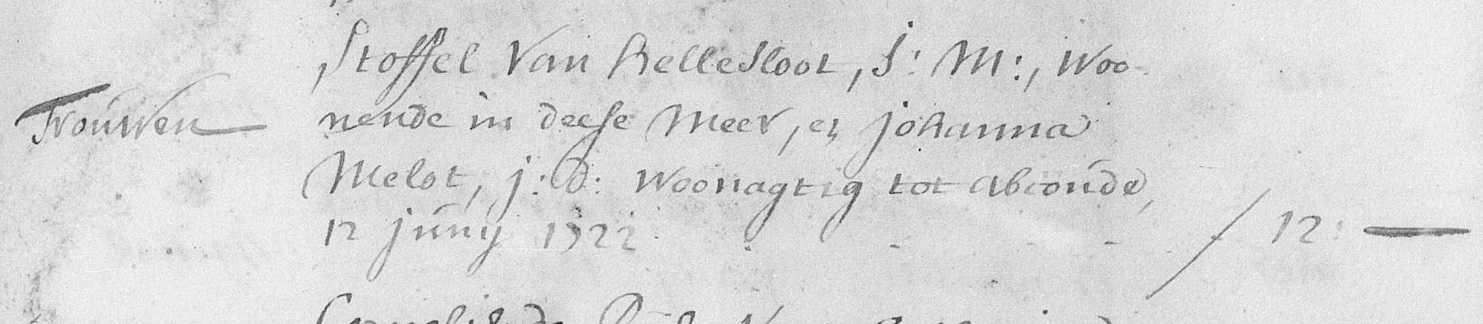 Stoffel Van Rellesloot, J: M:, Woo-
Trouwen nende in deese Meer, en Johanna
Melot, j: d: Woonagtig tot Abcoude,
12 junij 1722 - - - / 12: —